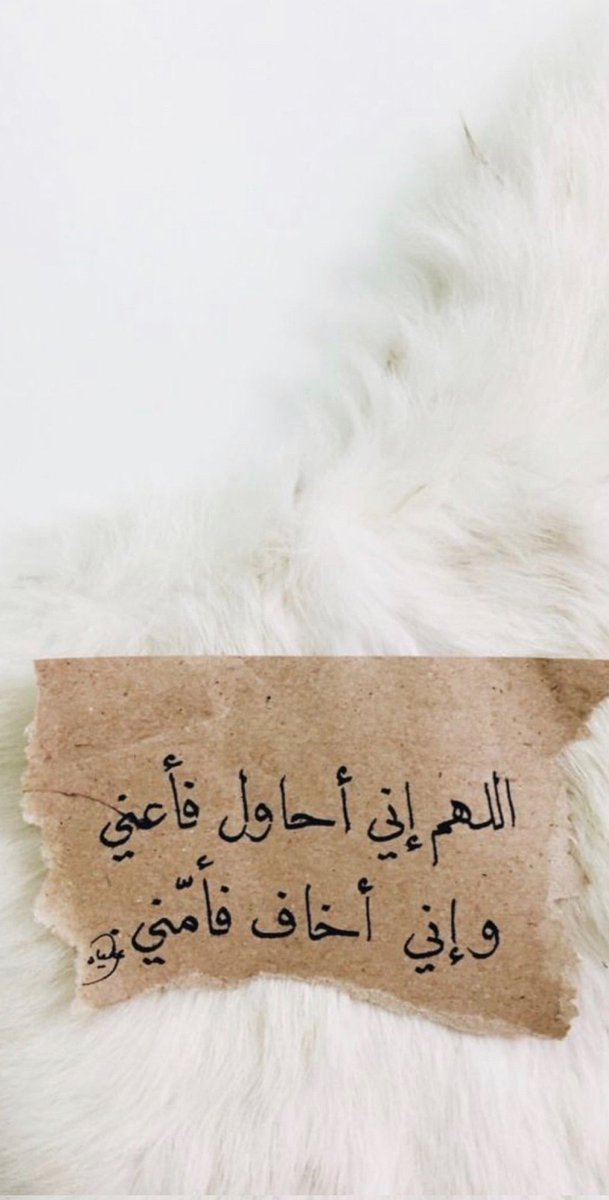 اللهم إني أحاول فأعني
وإني أخاف فأمّني